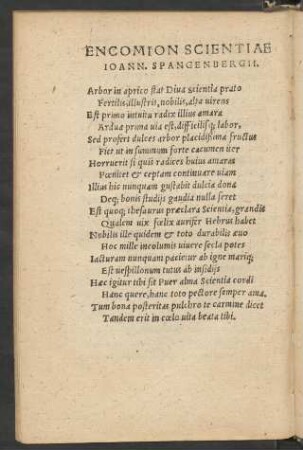 ENCOMION SCIENTIAE
IOANN. SPANGENBERGII.
Arbor in aprico stat Diua scientia prato
Fertilis, illustris, nobilis, alta uirens
Est primo intuitu radix illius amara
Ardua prima uia est, difficilisq; labor,
Sed profert dulces arbor placidissima fructus
Fiet ut in summum forte cacumen iter
Horruerit si quis radices huius amaras
Pœnitet & cœptam continuare uiam
Illius hic nunquam gustabit dulcia dona
Deq; bonis studijs gaudia nulla feret
Est quoq; thesaurus præclara Scientia, grandis
Qualem uix fœlix aurifer Hebrus habet
Nobilis ille quidem & toto durabilis æuo
Hoc mille incolumis uiuere secla potes
Iacturam nunquam pacietur ab igne mariq;
Est uespillonum tutus ab insidijs
Hæc igitur tibi sit Puer alma Scientia cordi
Hanc quere, hanc toto pectore semper ama,
Tum bona posteritas pulchro te carmine dicet
Tandem erit in cœlo uita beata tibi.